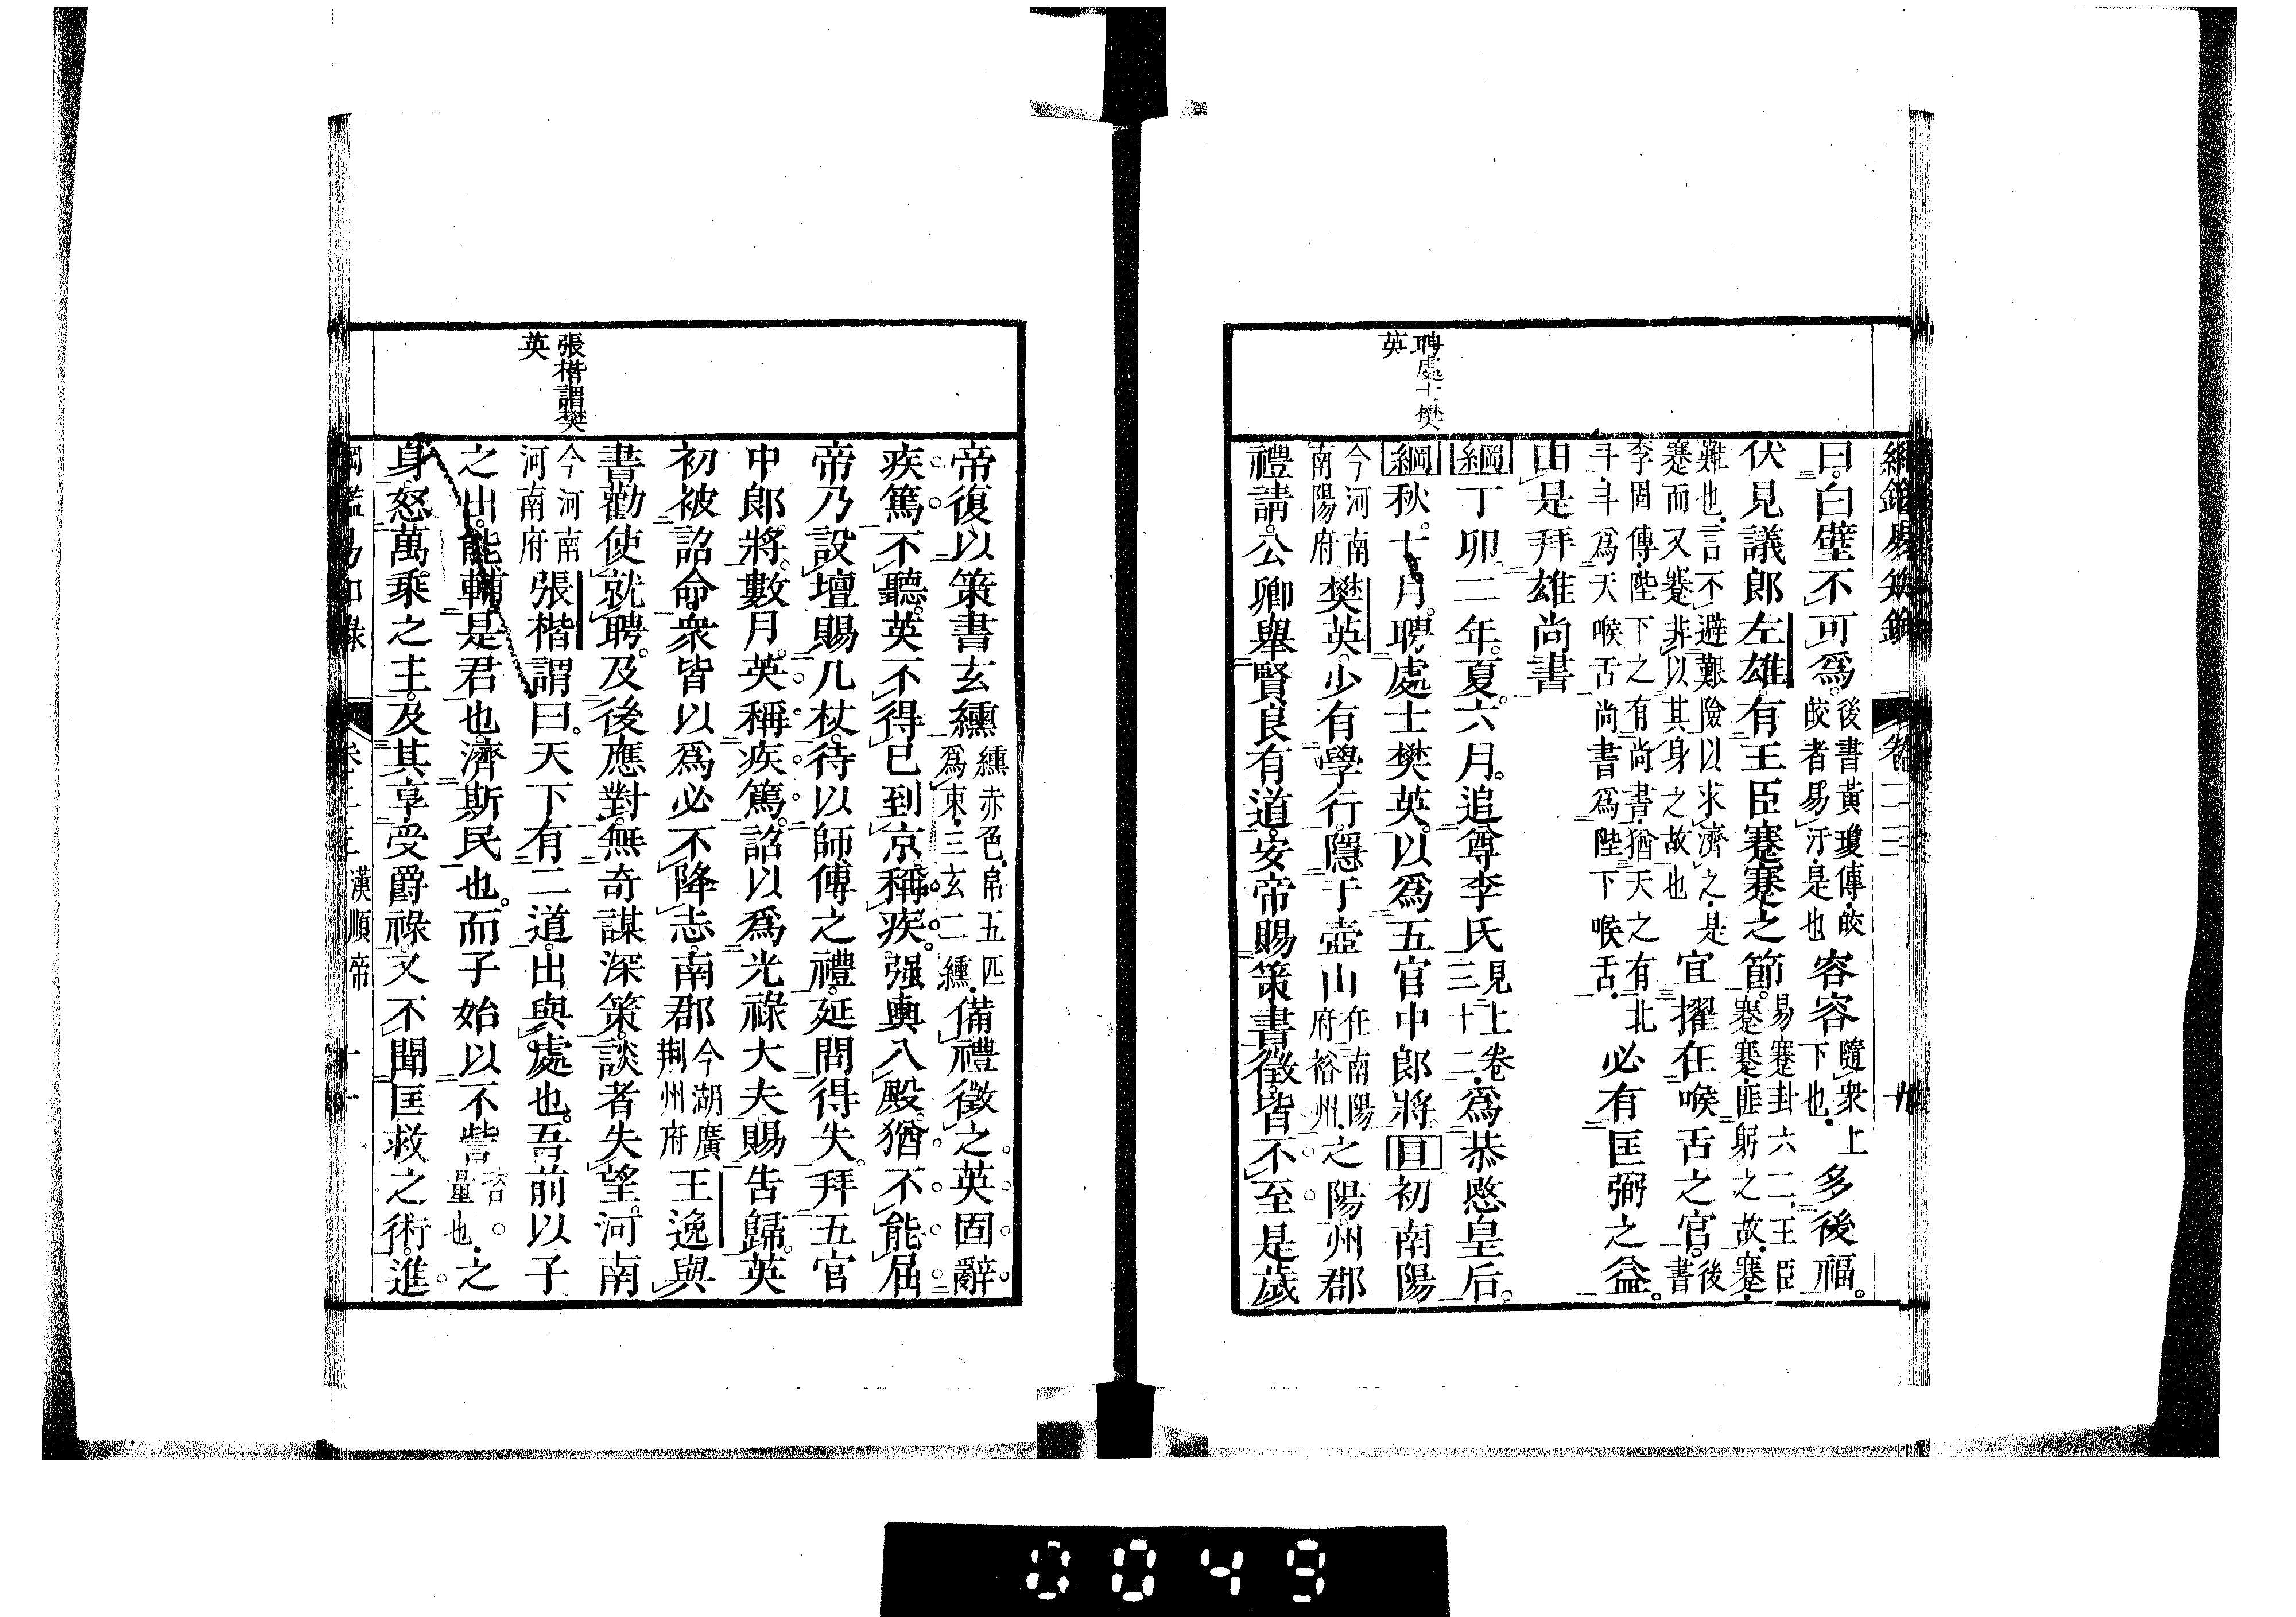 綱鑑易知錄 卷二三 十
聘處士樊
英
曰。白璧不可爲。後書黃瓊傳。皎皎者易汙。是也容容隨衆上下也。多後福。
伏見議郎左雄。有王臣蹇蹇之節。易蹇卦六二。王臣蹇蹇。匪躬之故。蹇。
難也。言不避艱險以求濟之。是蹇而又蹇。非以其身之故也宜擢在喉舌之官。後書
李固傳。陛下之有尚書。猶天之有北斗。斗爲天喉舌。尚書爲陛下喉舌。必有匡弼之益。
由是拜雄尚書
綱丁卯。二年。夏。六月。追尊李氏見上卷三十二。爲恭愍皇后。
綱秋。十月。聘處士樊英。以爲五官中郎將。目初南陽
今河南南陽府。樊英。少有學行。隱于壺山在南陽府裕州。之陽。州郡
禮請。公卿舉賢良有道。安帝賜策書徵。皆不至。是歲
帝復以策書玄纁纁赤色。帛五匹爲束。三玄二纁。備禮徵之。英固辭
疾篤。不聽。英不得已到京。稱疾。强輿入殿。猶不能屈
帝乃設壇。賜几杖。待以師傅之禮。延問得失。拜五官
中郎將。數月。英稱疾篤。詔以爲光祿大夫。賜告歸。英
初被詔命。衆皆以爲必不降志。南郡今湖廣荆州府王逸與
書勸使就聘。及後應對。無奇謀深策。談者失望。河南
今河南河南府張楷謂曰。天下有二道。出與處也。吾前以子
之出。能輔是君也。濟斯民也。而子始以不訾咨。量也。之
身。怒萬乘之主。及其享受爵祿。又不聞匡救之術。進
張楷謂樊
英
綱鑑易知錄 卷二三 漢順帝 十一
0049